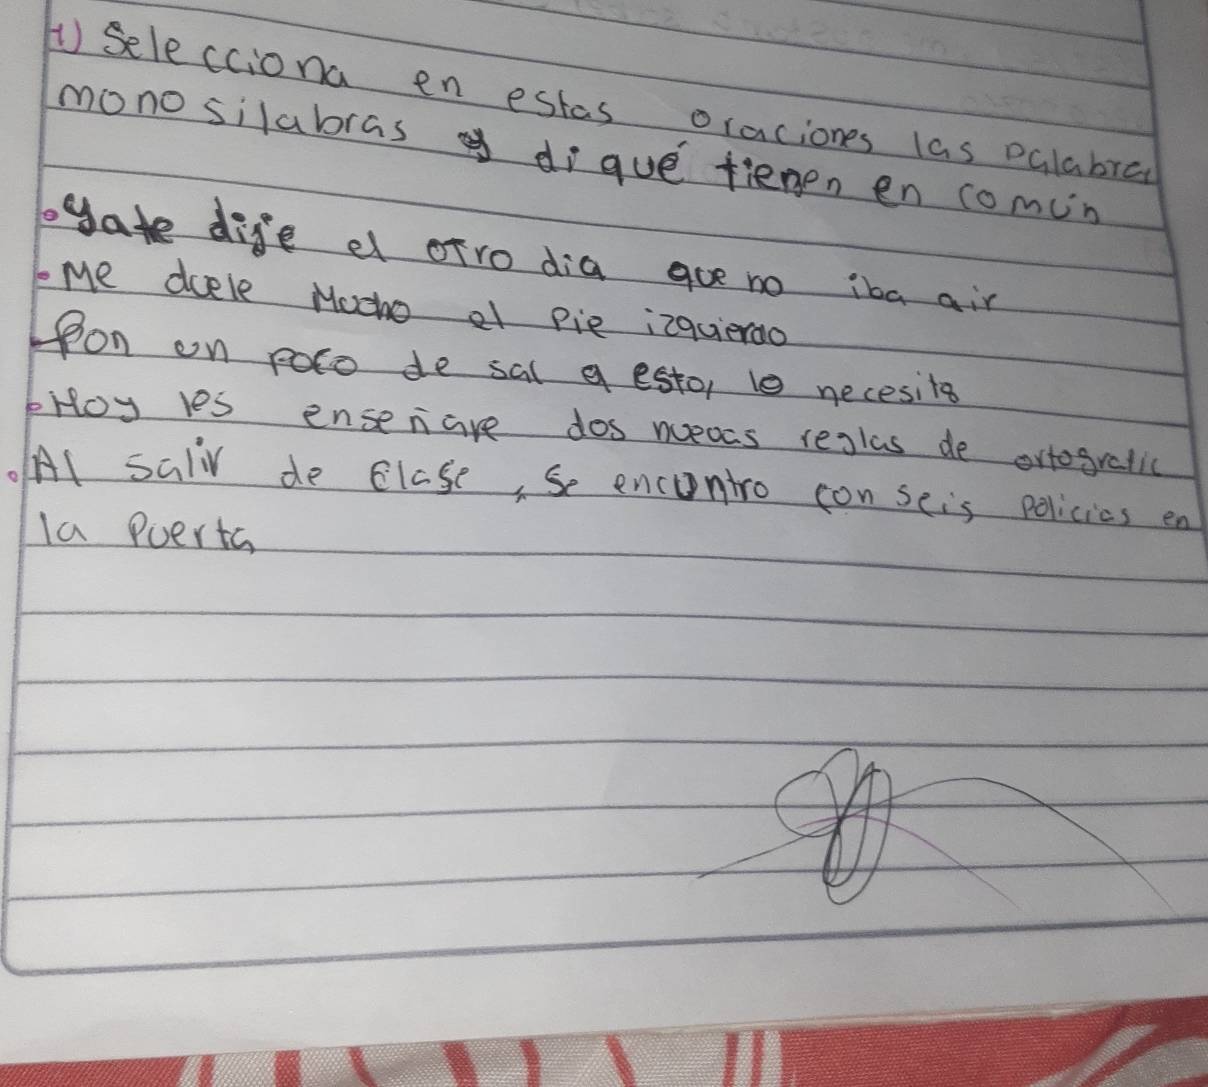 1) Selecciona en estas oraciones las palabras
monosilabras y di qué tienen en común
• ya te dije el otro dia que no iba a ir
• Me duele Mucho el Pie izquierdo
• Pon un poco de sal a esto, lo necesita
• Hoy les enseñare dos nuevas reglas de ortografic
• Al salir de clase, se encuntro con seis policias en
la Puerta